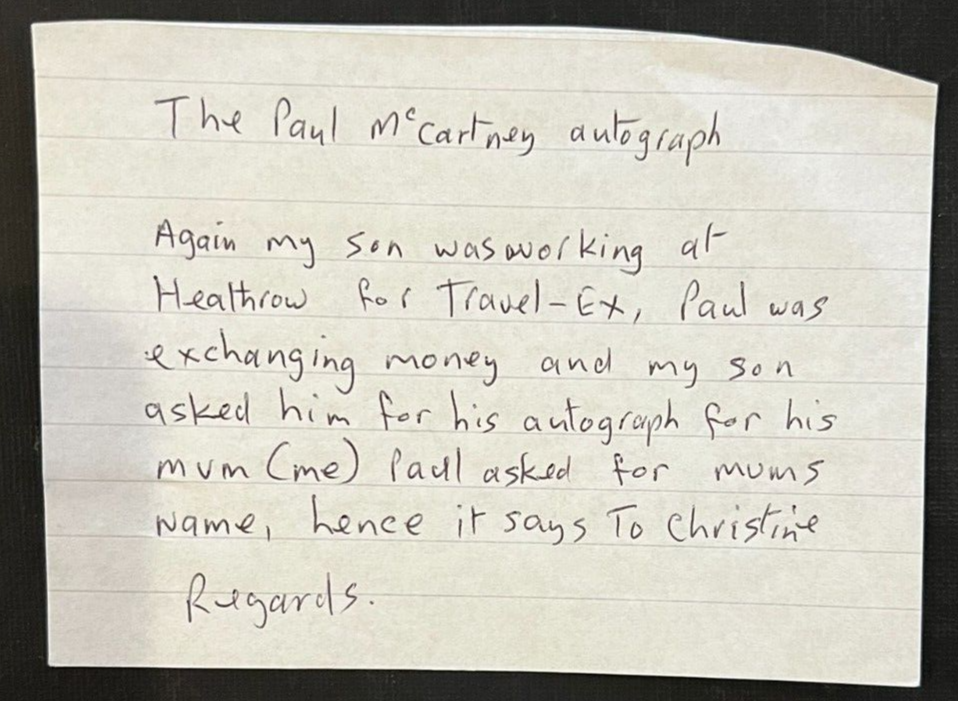 The Paul McCartney autograph
Again my son was working at
Heathrow for Travel-Ex, Paul was
exchanging money and my son
asked him for his autograph for his
mum (me) Paul asked for mums
name, hence it says To Christine
Regards.